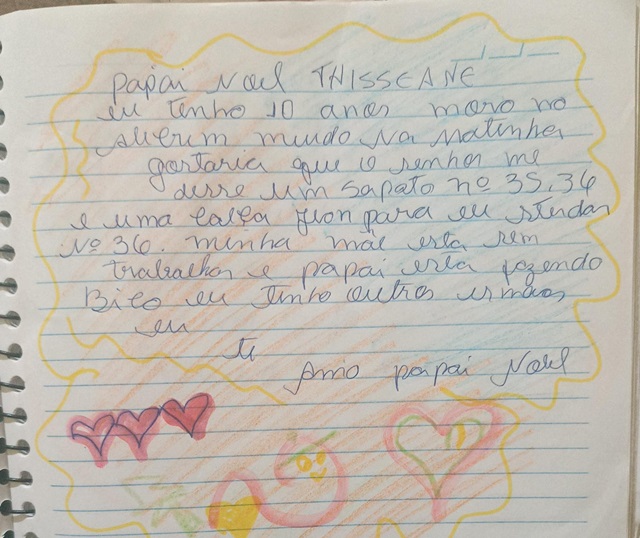 papai Noel THISSEANE
eu tenho 10 anos moro no
mundo Na Matinha
gostaria que o senhor me
desse um sapato nº 35.36
e uma calça para eu
Nº 36. minha mãe esta sem
trabalhar e papai esta fazendo
Bico eu tinho outros irmãos
eu
te
Amo papai Noel